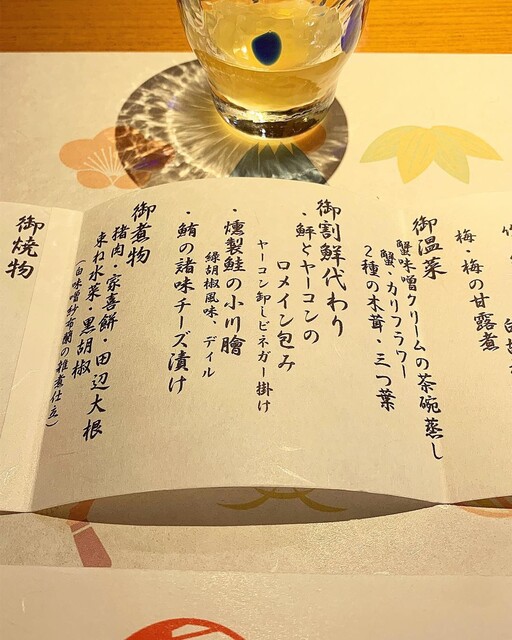 梅・梅の甘露煮
御温菜
蟹味噌クリームの茶碗蒸し
蟹・カリフラワー
2種の木茸・三つ葉
御割鮮代わり
・鮃とヤーコンの
ロメイン包み
ヤーコン卸しビネガー掛け
・燻製鮭の小川膾
緑胡椒風味、ディル
・鮪の諸味チーズ漬け
御煮物
猪肉・家喜餅・田辺大根
束ね水菜・黒胡椒
(白味噌紗布蘭の雑煮仕立)
御焼物